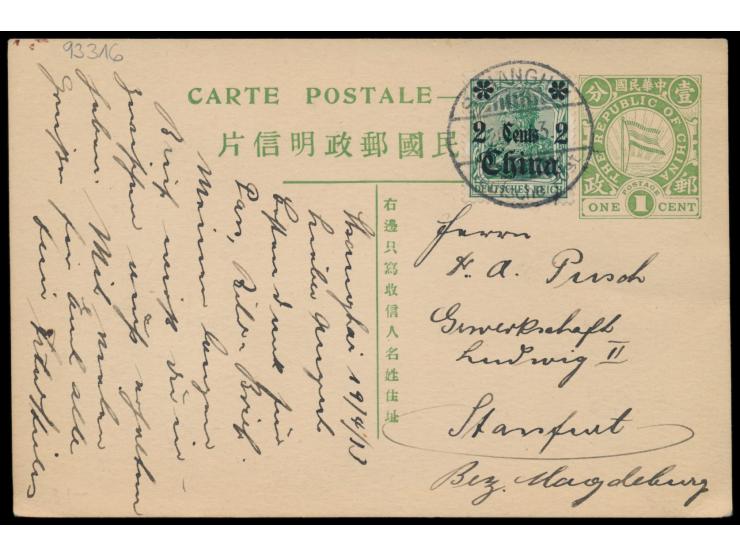 93316
CARTE POSTALE
片信明政郵國民
中華民國
壹
分
THE REPUBLIC OF CHINA
郵
政
POSTAGE
ONE 1 CENT
SHANGHAI
2 Cents 2
China
DEUTSCHES REICH
右邊只寫收信人名姓住址
Herrn
A. Pusch
Gewerkschaft
Ludwig II
Stassfurt
Bez. Magdeburg
Shanghai 19/4/13
Lieber August
Besten Dank für
Brief.
Meinen langen
Brief wirst du in-
zwischen wohl erhalten
haben. Mit vielen
Grüßen für Euch alle